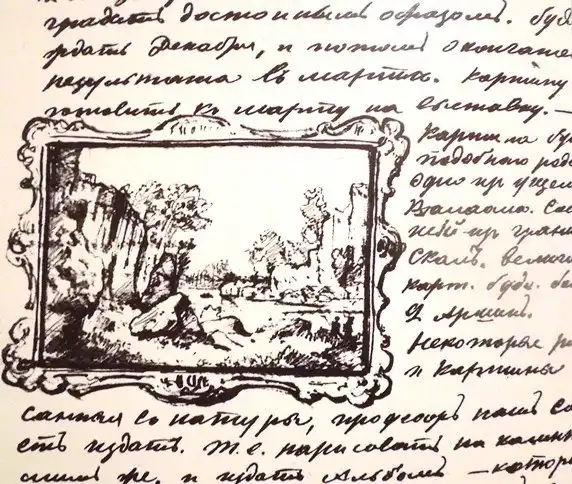 градить достойнымъ образомъ. Буд
ждать Декабря, и потомъ окончате
результата въ марта. Картину
готовить къ марту на выставку. —
Картина бу
подобнаго рода
одно изъ ущел
Валаама.
изъ гран
Скалъ. велич
карт. буд. бо
2 Аршинъ.
Некоторые ри
и Картины
санныя съ натуры, профессоръ нашъ со
есть издать. Т. е. нарисовать на камн
же, и издать Альбомъ — котор